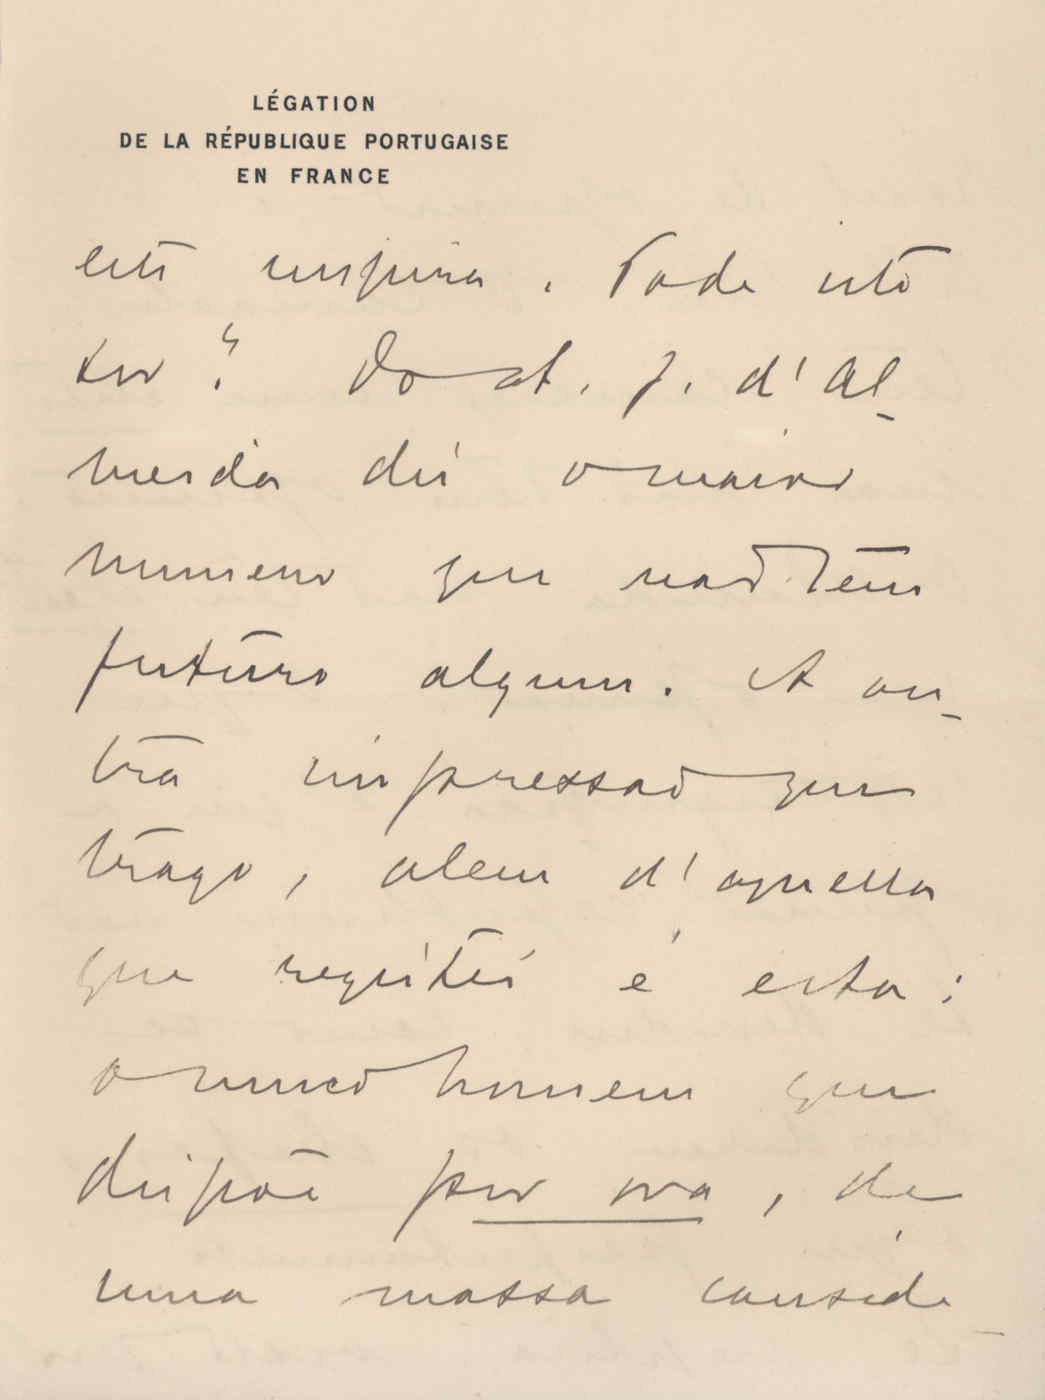 LÉGATION
DE LA RÉPUBLIQUE PORTUGAISE
EN FRANCE
está inspira. Pode isto
ser? Do A. J. d'Al-
meida diz o maior
numero que não tem
futuro algum. A ou-
tra impressão que
trago, alem d'aquella
que registei é esta:
o unico homem que
dispõe por ora, de
uma massa conside-